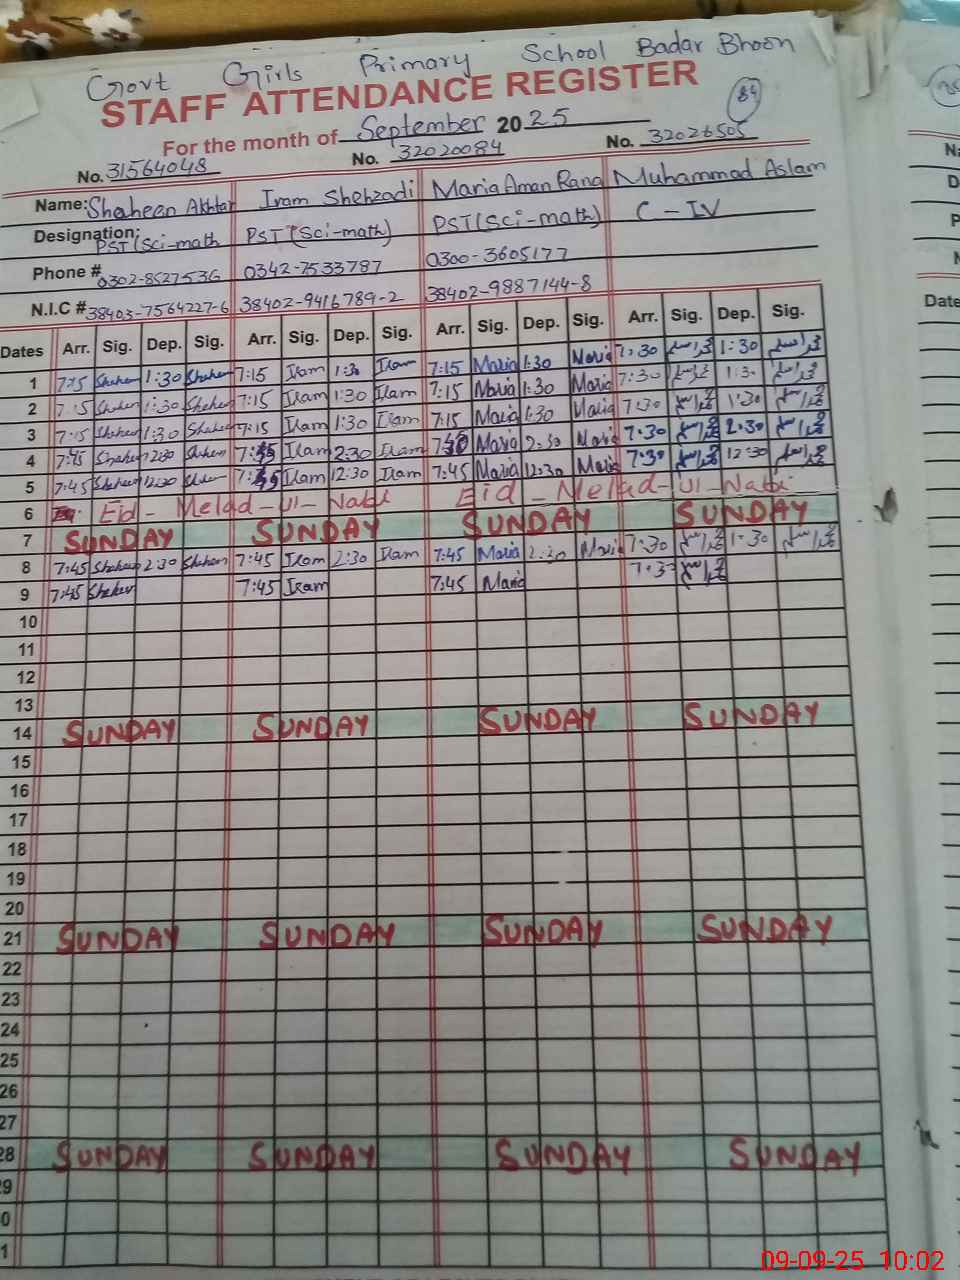 Govt Girls Primary School Badar Bhoon
STAFF ATTENDANCE REGISTER
84
For the month of September 2025
No. 31564048 No. 32020084 No. 32026505
Name: Shaheen Akhtar Iram Shehzadi Maria Aman Rana Muhammad Aslam
Designation: PST (Sci-math PST (Sci-math) PST (Sci-math) C - IV
Phone # 0302-8527536 0342-7533787 0300-3605177
N.I.C # 38403-7564227-6 38402-9416789-2 38402-9887144-8
Dates Arr. Sig. Dep. Sig. Arr. Sig. Dep. Sig. Arr. Sig. Dep. Sig. Arr. Sig. Dep. Sig.
1 7:15 Shaheen 1:30 Shaheen 7:15 Iram 1:30 Iram 7:15 Maria 1:30 Maria 7:30 محمد اسلم 1:30 محمد اسلم
2 7:15 Shaheen 1:30 Shaheen 7:15 Iram 1:30 Iram 7:15 Maria 1:30 Maria 7:30 محمد اسلم 1:30 محمد اسلم
3 7:15 Shaheen 1:30 Shaheen 7:15 Iram 1:30 Iram 7:15 Maria 1:30 Maria 7:30 محمد اسلم 1:30 محمد اسلم
4 7:45 Shaheen 12:30 Shaheen 7:45 Iram 2:30 Iram Maria 2:30 Maria 7:30 محمد اسلم 2:30 محمد اسلم
5 7:45 Shaheen 12:30 7:45 Iram 12:30 Iram 7:45 Maria 12:30 Maria 7:30 محمد اسلم 12:30 محمد اسلم
6 Eid - Melad-ul-Nabi Eid - Melad-ul-Nabi
7 SUNDAY SUNDAY SUNDAY SUNDAY
8 7:45 Shaheen 2:30 Shaheen 7:45 Iram 2:30 Iram 7:45 Maria 2:30 Maria 7:30 محمد اسلم 1:30 محمد اسلم
9 7:45 Shaheen 7:45 Iram 7:45 Maria 7:30 محمد اسلم
10
11
12
13
14 SUNDAY SUNDAY SUNDAY SUNDAY
15
16
17
18
19
20
21 SUNDAY SUNDAY SUNDAY SUNDAY
22
23
24
25
26
27
28 SUNDAY SUNDAY SUNDAY SUNDAY
9
0
1
Date
09-09-25 10:02